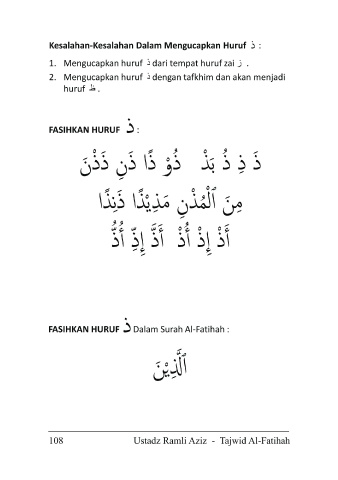 Kesalahan-Kesalahan Dalam Mengucapkan Huruf ذ :
1. Mengucapkan huruf ذ dari tempat huruf zai ز .
2. Mengucapkan huruf ذ dengan tafkhim dan akan menjadi
huruf ظ .
FASIHKAN HURUF ذ :
ذَ ذِ ذُ بَذْ ذُوْ ذًا ذَنِ ذَذْنَ
مِنَ ٱلْمُذْنِ مَذِيْذًا ذَنِذًا
أَذْ إِذْ أُذْ أَذَّ إِذِّ أُذُّ
FASIHKAN HURUF ذ Dalam Surah Al-Fatihah :
ٱلَّذِيْنَ
108 Ustadz Ramli Aziz - Tajwid Al-Fatihah